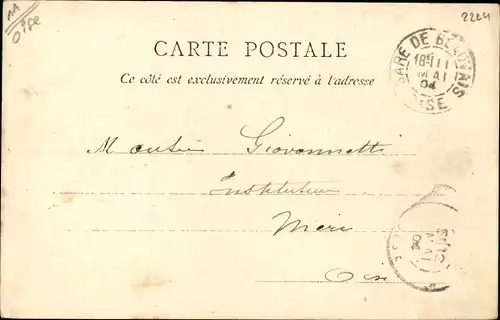 AA
Oise
2224
CARTE POSTALE
Ce côté est exclusivement réservé à l'adresse
GARE DE BEAUVAIS
MAI
04
OISE
Giovannetti
Instituteur
Méru
Oise
MAI
04